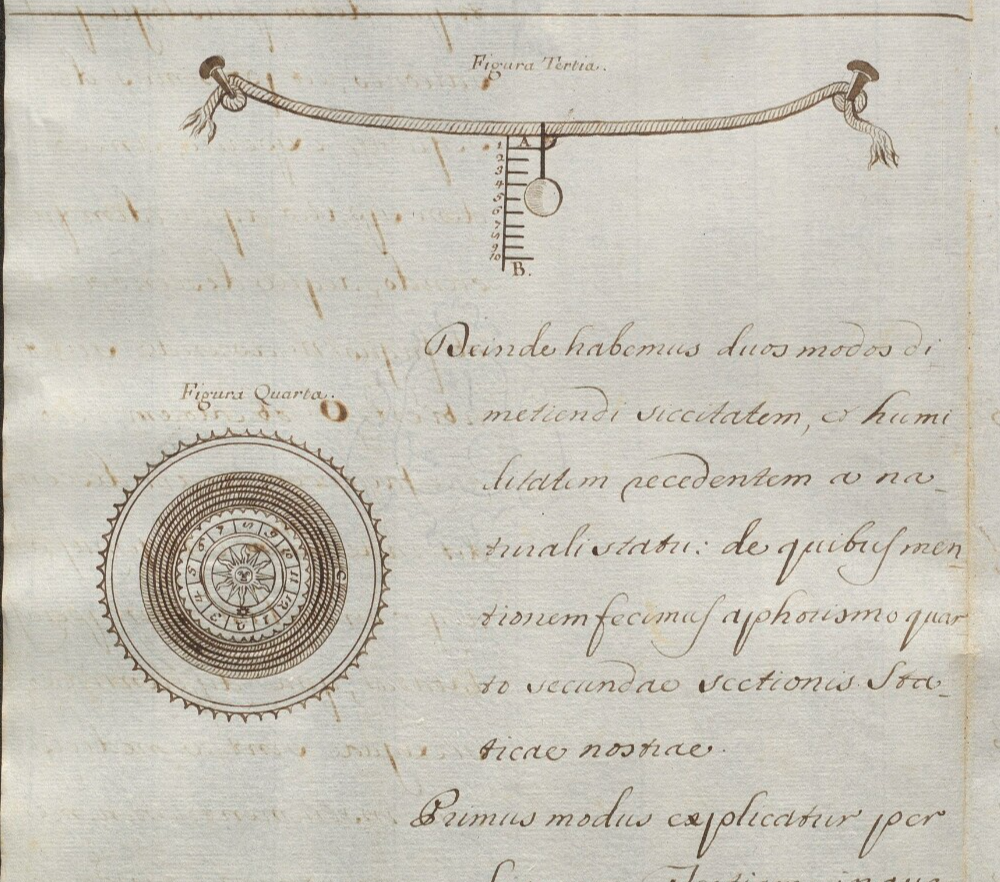 Figura Tertia.
A
1
2
3
4
5
6
7
8
9
10
B.
Deinde habemus duos modos di
Figura Quarta.
metiendi siccitatem, & humi
ditatem recedentem a na-
turali statu: de quibus men
tionem fecimus aphorismo quar
to secundae sectionis Sta-
1 2 3 4 5 6 7 8 9 10 11 12
ticae nostrae.
Primus modus explicatur per